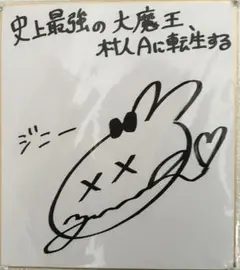 史上最強の大魔王、
村人Aに転生する
ジニー